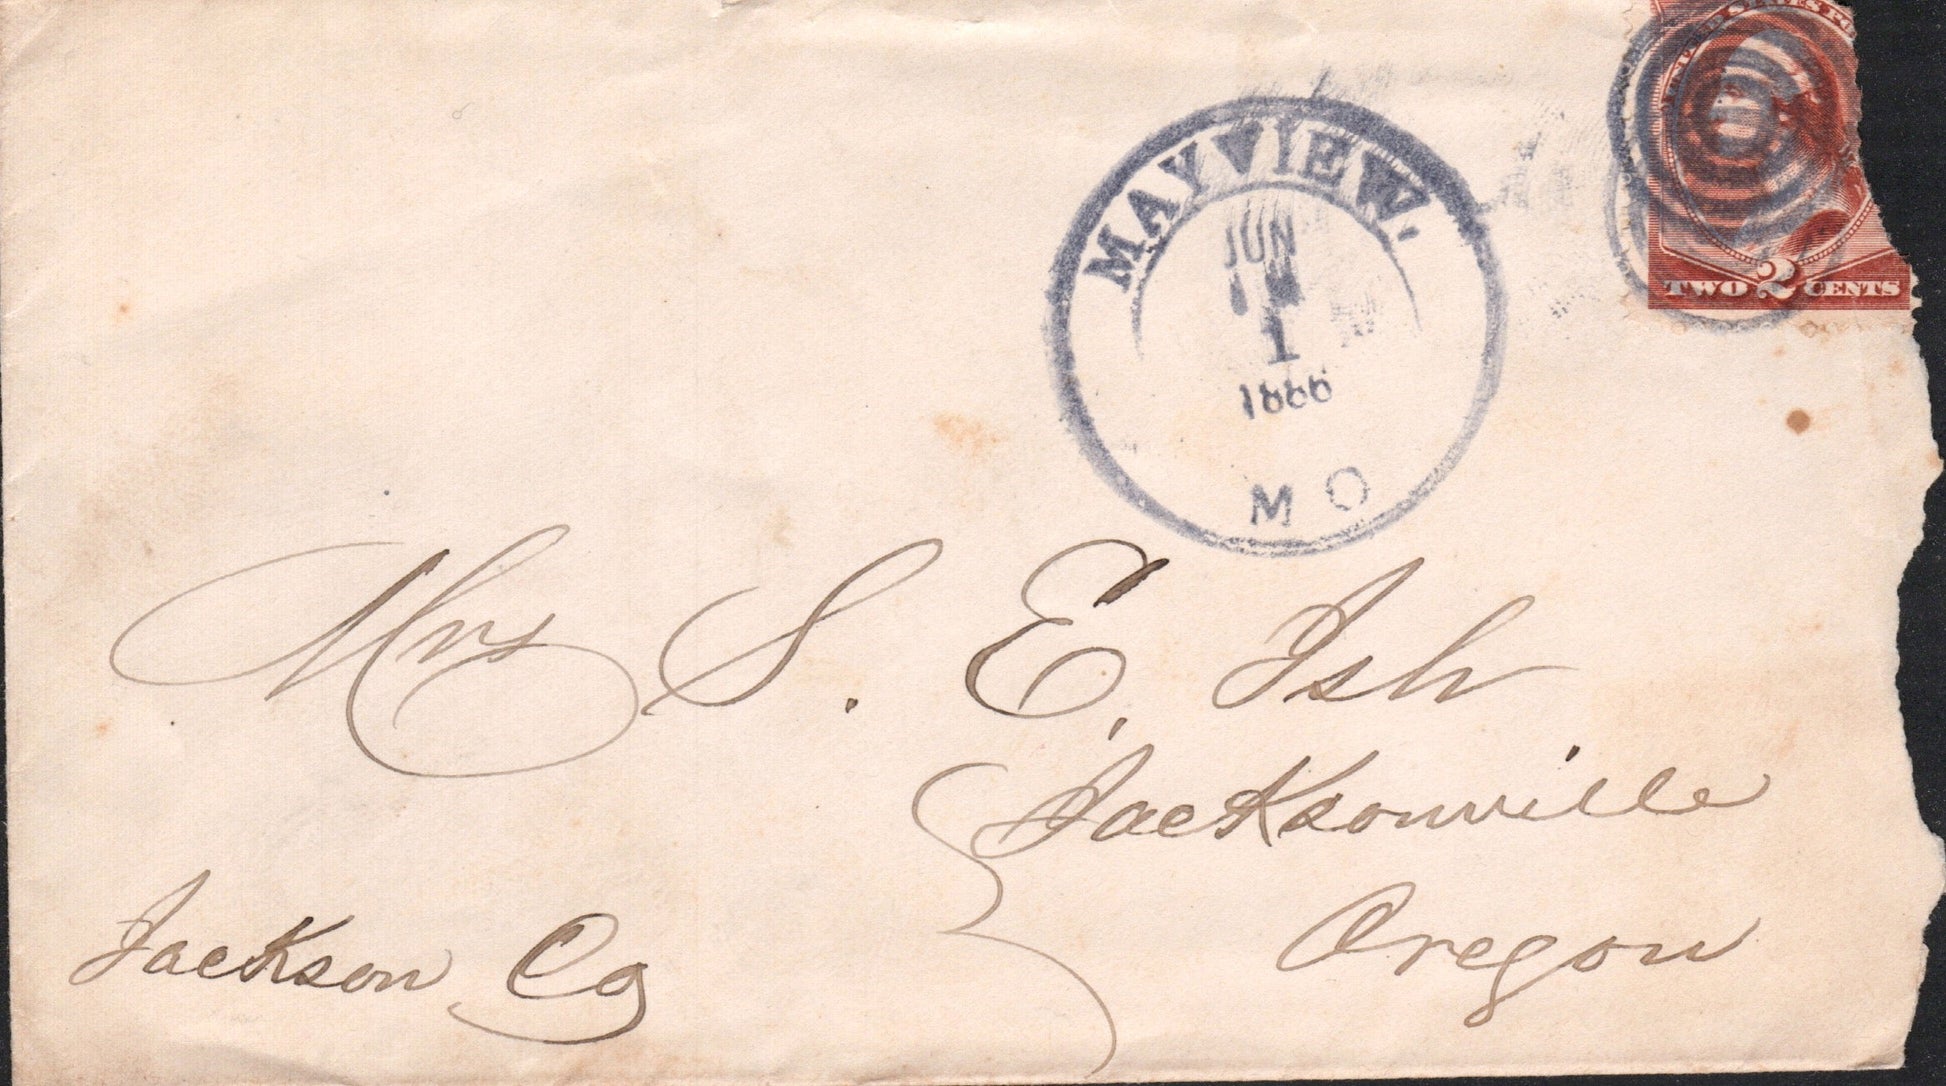 UNITED STATES PO
TWO 2 CENTS
MAYVIEW.
JUN
1
1886
MO
Mrs S. E. Ish
Jacksonville
Oregon
Jackson Co